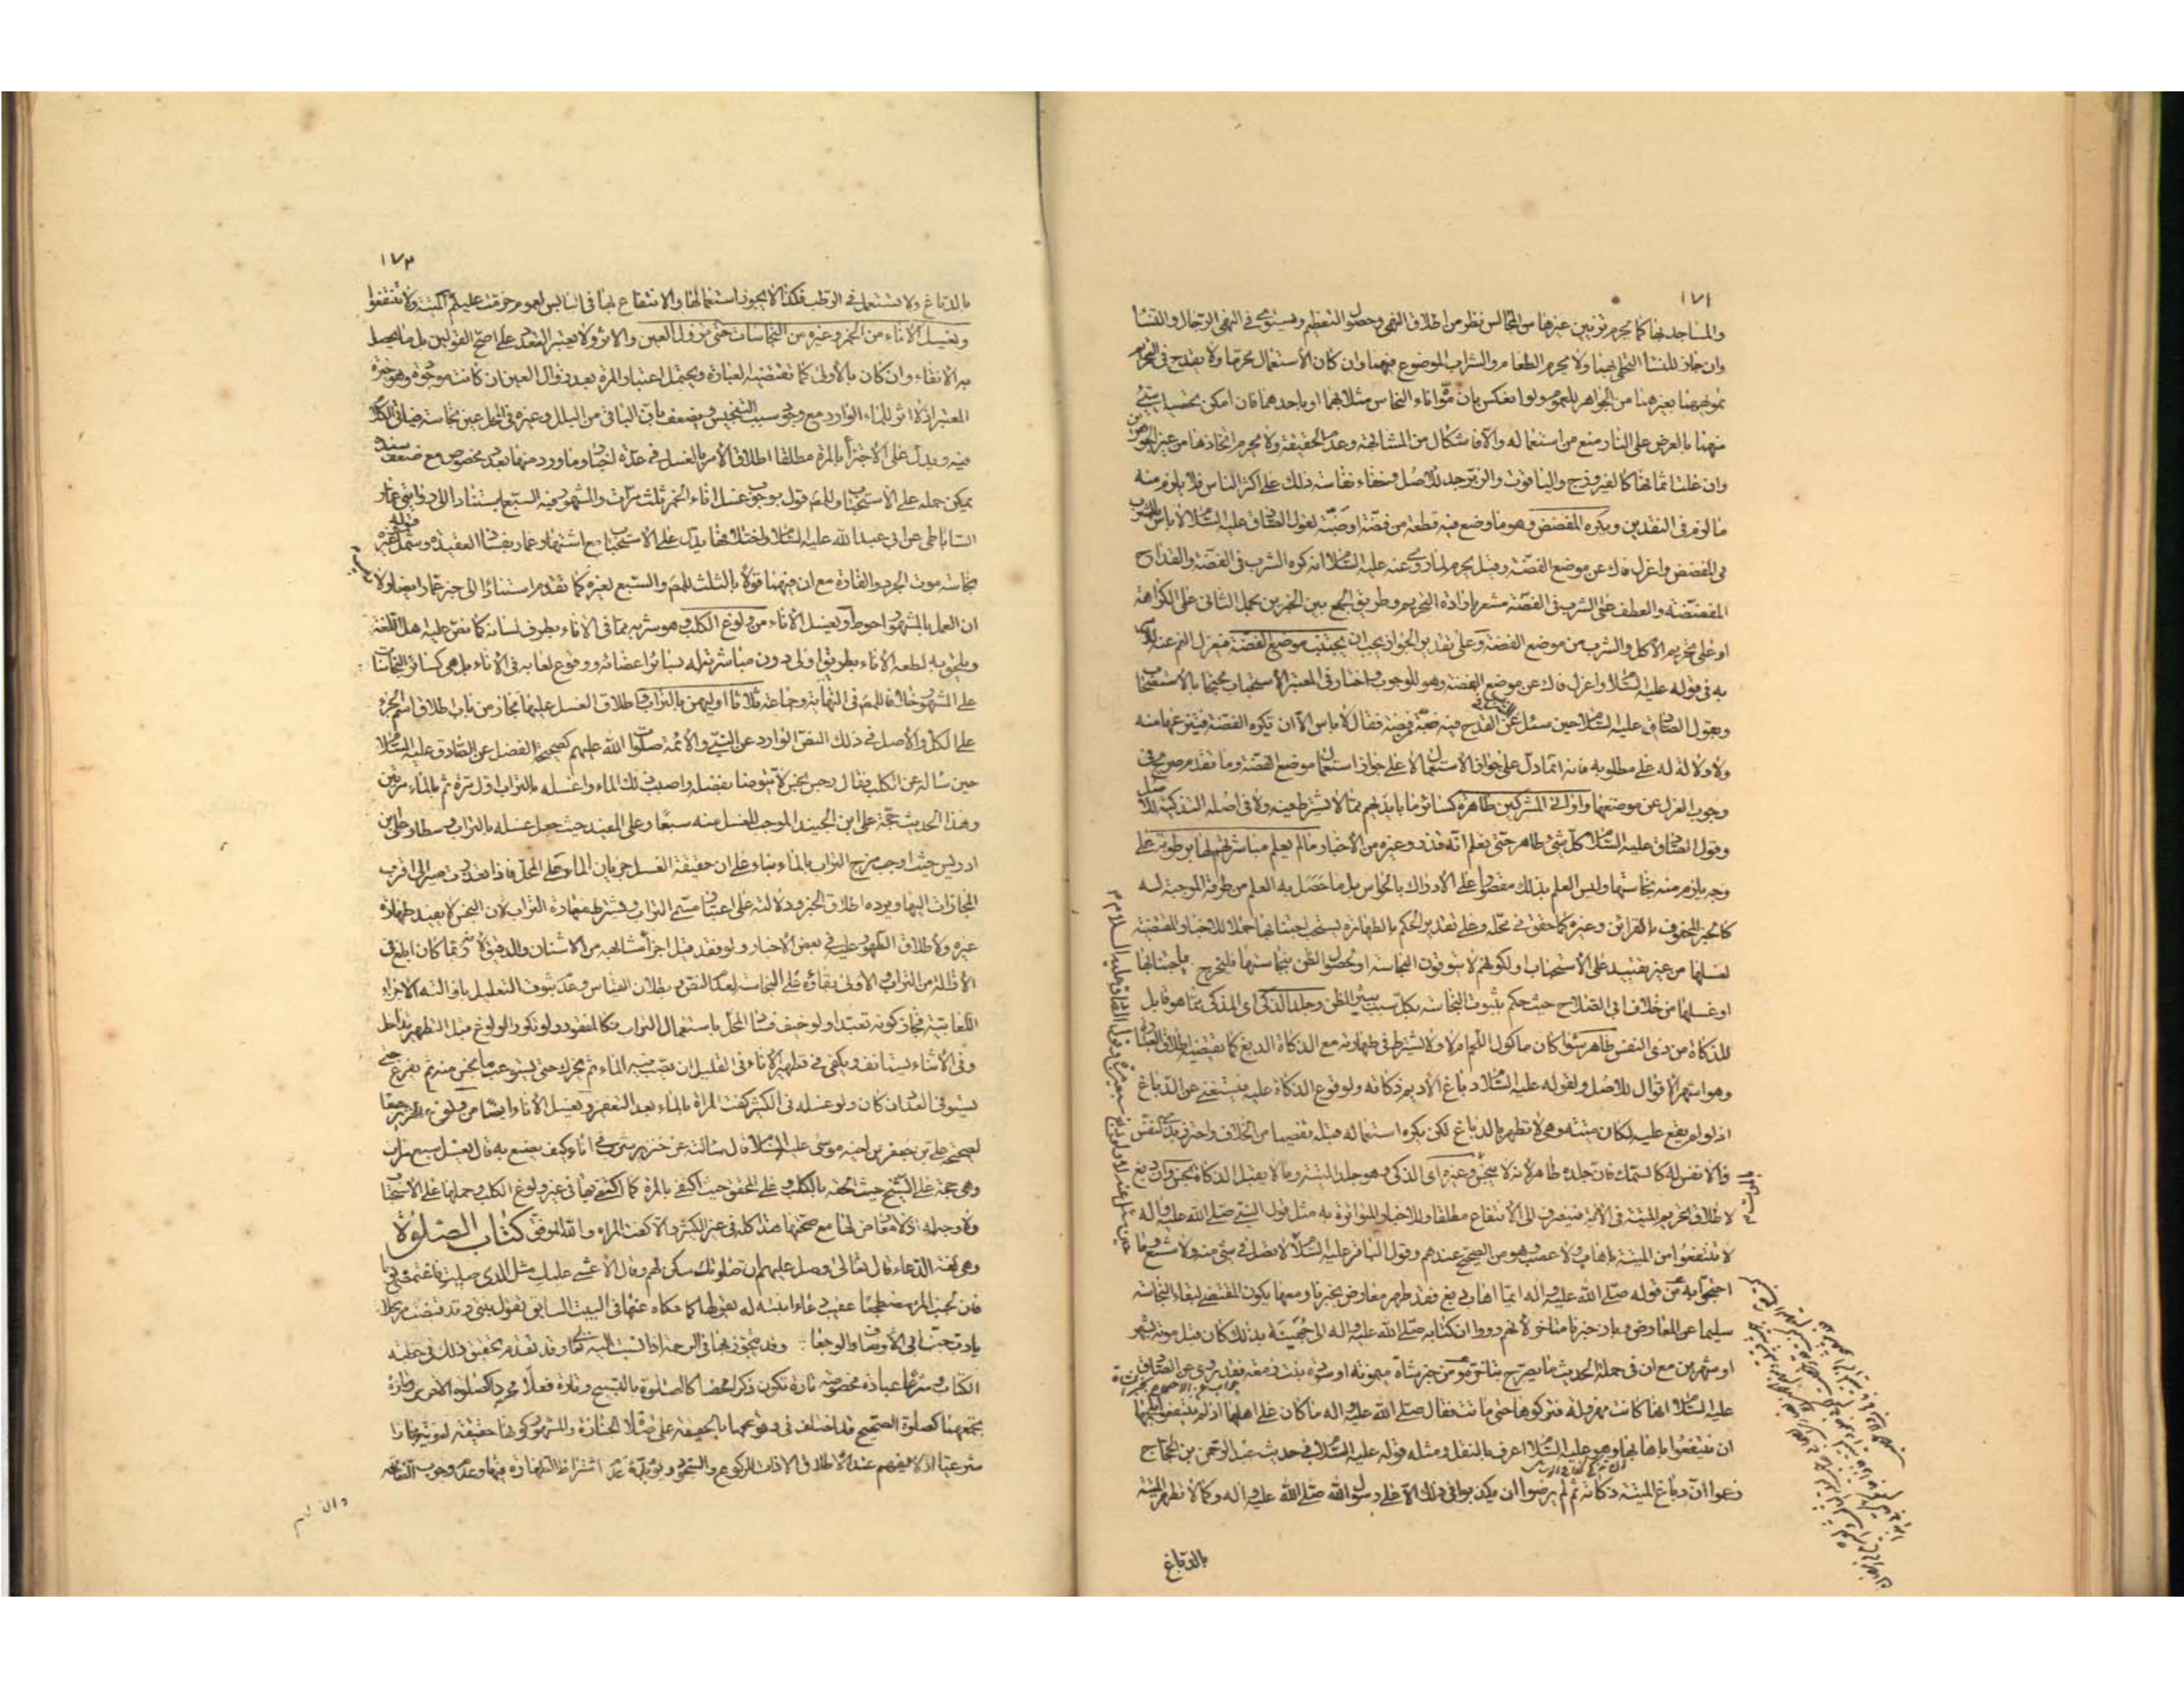 ١٧٢
والمساجد بها كما يحرم تزيين غيرها من المجالس نظر من اطلاق النهي وحصول التعظيم ويستوي في النهي الرجال والنسا
وان جاز للنسا التحلي بهما ولا يحرم الطعام والشراب الموضوع فيهما وان كان الاستعمال محرما ولا يقدح في التحريم
تمويههما بغيرهما من الجواهر للعموم ولو انعكس بان موّه اناء النحاس مثلا بهما او باحدهما فان امكن تحصيل شيئ
منهما بالعرض على النار منع من استعماله والا فاشكال من المشابهة وعدم الحقيقة ولا يحرم اتخاذها من غير الجوهرين
وان غلت اثمانها كالفيروزج والياقوت والزبرجد للاصل وخفاء نفاسة ذلك على اكثر الناس فلا يلزم منه
ما لزم في النقدين ويكره المفضض وهو ما وضع فيه قطعة من فضة او ضبّة لقول الصادق عليه السلام لا باس بالشرب
في المفضض واعزل فاك عن موضع الفضة وقيل يحرم لما روي عنه عليه السلام انه كره الشرب في الفضة والقداح
المفضضة والعطف على الشرب في الفضة مشعر بارادة التحريم وطريق الجمع بين الخبرين بحمل الثاني على الكراهة
او على تحريم الاكل والشرب من موضع الفضة وعلى تقدير الجواز يجب ان يجتنب موضع الفضة فيعزل الفم عنه للامر
به في قوله عليه السلام واعزل فاك عن موضع الفضة وهو للوجوب واختار في المعتبر الاستحباب محتجا بالاستصحاب
وبقول الصادق عليه السلام حين سئل عن القدح فيه ضبّة فضة فقال لا باس الا ان تكره الفضة فينزعها منه
ولا دلالة له على مطلوبه فانه انما دل على جواز الاستعمال لا على جواز استعمال موضع الفضة وما تقدم صريح في
وجوب العزل عن موضعها واواني المشركين طاهرة كسائر ما بايديهم مما لا يشترط فيه ولا في اصله التذكية للاصل
وقول الصادق عليه السلام كل شئ طاهر حتى تعلم انه قذر وغيره من الاخبار ما لم يعلم مباشرتهم لها برطوبة على
وجه يلزم منه نجاستها وليس العلم بذلك مقصورا على الادراك بالحواس بل ما حصل به العلم من طرقه الموجبة له
كالخبر المحفوف بالقرائن وغيره كما حقق في محله وعلى تقدير الحكم بالطهارة يستحب اجتنابها حملا للاخبار المتضمنة
لغسلها من غير تقييد على الاستحباب او لكونهم لا يتوقون النجاسة او لحصول الظن بنجاستها فليخرج باجتنابها
او غسلها من خلاف ابي الصلاح حيث حكم بثبوت النجاسة بكل سبب يثير الظن وجلد الذكي اي المذكى مما هو قابل
للذكاة من ذي النفس طاهر سواء كان ماكول اللحم ام لا ولا يشترط في طهارته مع الذكاة الدبغ كما يقتضيه اطلاق العبارة
وهو اشهر الاقوال للاصل ولقوله عليه السلام دباغ الاديم ذكاته ولوقوع الذكاة عليه فيستغنى عن الدباغ
اذ لو لم يقع عليه لكان ميتة وهي لا تطهر بالدباغ لكن يكره استعماله قبله تفصيا من الخلاف واحترز بذي النفس
والا نفس له كالسمك فان جلده طاهر لانه لا ينجس وغيره اي الذكي وهو جلد الميتة وما لا يقبل الذكاة نجس وان دبغ
لاطلاق تحريم الميتة في الاية فينصرف الى الانتفاع مطلقا وللاخبار المتواترة به مثل قول النبي صلى الله عليه واله
لا تنتفعوا من الميتة باهاب ولا عصب وهو من الصحيح عندهم وقول الباقر عليه السلام لا تصل في شئ منه ولا شسع وما
احتجوا به من قوله صلى الله عليه واله ايما اهاب دبغ فقد طهر معارض بخبرنا ومعها يكون المقتضي لبقاء النجاسة
سليما عن المعارض وبان خبرنا متاخر لانهم رووا ان كتابه صلى الله عليه واله الى جهينة بذلك كان قبل موته بشهر
او شهرين مع ان في جملة الحديث ما يصرح بشاة ميمونة او سودة بنت زمعة فقد روي عن الصادق
عليه السلام انها كانت مهزولة فتركوها حتى ماتت فقال صلى الله عليه واله ما كان على اهلها اذ لم ينتفعوا بلحمها
ان ينتفعوا باهابها وهو عليه السلام اعرف بالنقل ومثله قوله عليه السلام في حديث عبد الرحمن بن الحجاج
زعموا ان دباغ الميتة ذكاته ثم لم يرضوا ان يكذبوا في ذلك الا على رسول الله صلى الله عليه واله وكما لا تطهر الميتة
بالدباغ
١٧٣
بالدباغ ولا تستعمل في الرطب فكذا لا يجوز استعمالها والانتفاع بها في اليابس لعموم حرمت عليكم الميتة ولا تنتفعوا
ويغسل الاناء من الخمر وغيره من النجاسات حتى تزول العين والاثر ولا يعتبر التعدد على اصح القولين بل ما يحصل
به الانقاء وان كان بالاولى كما تقتضيه العبارة ويحتمل اعتبار المرة بعد زوال العين ان كانت موجودة وهو خيرة
المعتبر اذ لا اثر للماء الوارد مع وجود سبب التنجيس ويضعف بان الباقي من البلل وغيره في المحل عين نجاسة فياتي الكلام
فيه ويدل على الاجتزاء بالمرة مطلقا اطلاق الامر بالغسل في عدة اخبار وما ورد منها بعدد مخصوص مع ضعف سنده
يمكن حمله على الاستحباب وللمص قول بوجوب غسل اناء الخمر ثلث مرات والمشهور فيه السبع استنادا الى رواية عمار
الساباطي عن ابي عبد الله عليه السلام واختلافها يدل على الاستحباب مع اشتهار عمار بفساد العقيدة ويشمل قوله وغيره
نجاسة موت الجرذ والفارة مع ان فيهما قولا بالثلث للمص والسبع لغيره كما تقدم استنادا الى خبر عمار ايضا ولا
ان العمل بالمشهور احوط ويغسل الاناء من ولوغ الكلب وهو شربه مما في الاناء بطرف لسانه كما نص عليه اهل اللغة
ويلحق به لطعه الاناء بطريق اولى دون مباشرته له بسائر اعضائه ووقوع لعابه في الاناء بل هو كسائر النجاسات
على المشهور خلافا للمص في النهاية وجماعة ثلاثا اوليهن بالتراب واطلاق الغسل عليها مجاز من باب اطلاق اسم الجزء
على الكل والاصل في ذلك النص الوارد عن النبي والائمة صلوات الله عليهم كصحيحة الفضل عن الصادق عليه السلام
حين ساله عن الكلب فقال رجس نجس لا تتوضا بفضله واصبب ذلك الماء واغسله بالتراب اول مرة ثم بالماء مرتين
وهذا الحديث حجة على ابن الجنيد الموجب للغسل منه سبعا وعلى المفيد حيث جعل غسله بالتراب وسطا وعلى ابن
ادريس حيث اوجب مزج التراب بالماء بناء على ان حقيقة الغسل جريان الماء على المحل فاذا تعذرت صير الى اقرب
المجازات اليها ويرده اطلاق الخبر ودلالته على اعتبار مسمى التراب ويشترط طهارة التراب لان النجس لا يفيد طهارة
غيره ولاطلاق الطهور عليه في بعض الاخبار ولو فقد قيل اجزأ مشابهه من الاشنان والدقيق لانه ربما كان ابلغ في
الازالة من التراب والاولى بقاؤه على النجاسة لعدم النص وبطلان القياس وعدم ثبوت التعليل بازالته الاجزاء
اللعابية فجاز كونه تعبدا ولو خيف فساد المحل باستعمال التراب فكالمفقود ولو تكرر الولوغ قبل التطهير تداخل
وفي الاثناء يستانف ويكفي في تطهير الاناء في القليل ان يصب فيه الماء ثم يحرك حتى يستوعب ما نجس منه ثم يفرغ حتى
يستوفي العدد ان كان ولو غسله في الكثير كفت المرة بالماء بعد التعفير ويغسل الاناء وايضا من ولوغ الخنزير سبعا
لصحيح علي بن جعفر عن اخيه موسى عليه السلام قال سالته عن خنزير شرب في اناء كيف يصنع به قال يغسل سبع مرات
وهي حجة على الشيخ حيث الحقه بالكلب وعلى المحقق حيث اكتفى بالمرة كما اكتفى بها في غير ولوغ الكلب وحملها على الاستحباب
ولا وجه له اذ لا معارض لها مع صحتها هذا كله في غير الكثير والا كفت المرة والله الموفق كتاب الصلوة
وهي لغة الدعاء قال تعالى وصل عليهم ان صلوتك سكن لهم وقال الاعشى عليك مثل الذي صليت فاغتمضي
فان لجنب المرء مضطجعا عقيب دعاء ابنته له بقولها كما حكاه عنها في البيت السابق تقول بنتي وقد قربت مرتحلا
يا رب جنب ابي الاوصاب والوجعا وقد تجوز بها في الرحمة اذا نسبت اليه تعالى وقد تقدم تحقيق ذلك في خطبة
الكتاب وشرعا عبادة مخصوصة تارة تكون ذكرا محضا كالصلوة بالتسبيح وتارة فعلا مجردا كصلوة الاخرس وتارة
تجمعهما كصلوة الصحيح وقد اختلف في وقوعها بالحقيقة على صلاة الجنازة والمشهور كونها حقيقة لغوية مجازا
شرعيا اذ لا يفهم عند الاطلاق الا ذات الركوع والسجود ويؤيده عدم اشتراط الطهارة فيها وعدم وجوب الفاتحة